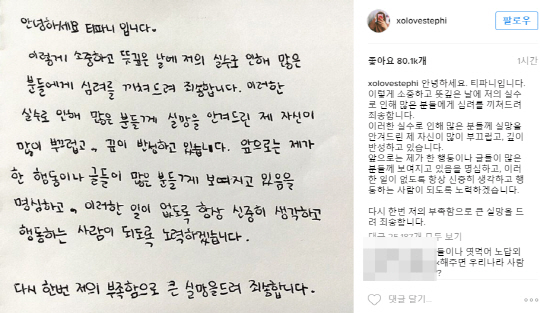 안녕하세요 티파니 입니다.
이렇게 소중하고 뜻깊은 날에 저의 실수로 인해 많은
분들에게 심려를 끼쳐드려 죄송합니다. 이러한
실수로 인해 많은 분들께 실망을 안겨드린 제 자신이
많이 부끄럽고, 깊이 반성하고 있습니다. 앞으로는 제가
한 행동이나 글들이 많은 분들께 보여지고 있음을
명심하고, 이러한 일이 없도록 항상 신중히 생각하고
행동하는 사람이 되도록 노력하겠습니다.
다시 한번 저의 부족함으로 큰 실망을드려 죄송합니다.
xolovestephi
팔로우
좋아요 80.1k개
1시간
xolovestephi 안녕하세요. 티파니입니다.
이렇게 소중하고 뜻깊은 날에 저의 실수
로 인해 많은 분들에게 심려를 끼쳐드려
죄송합니다.
이러한 실수로 인해 많은 분들께 실망을
안겨드린 제 자신이 많이 부끄럽고, 깊이
반성하고 있습니다.
앞으로는 제가 한 행동이나 글들이 많은
분들께 보여지고 있음을 명심하고, 이러
한 일이 없도록 항상 신중히 생각하고 행
동하는 사람이 되도록 노력하겠습니다.
다시 한번 저의 부족함으로 큰 실망을 드
려 죄송합니다.
댓글 모두 보기
들이나 엿먹어 노답외
해주면 우리나라 사람
?
댓글 달기...